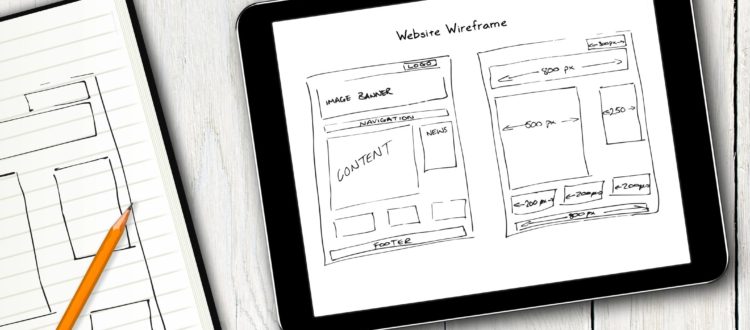 Website Wireframe
LOGO
IMAGE BANNER
NAVIGATION
CONTENT
NEWS
FOOTER
300px
800 px
500 px
250
200px
200px
200px
800 px